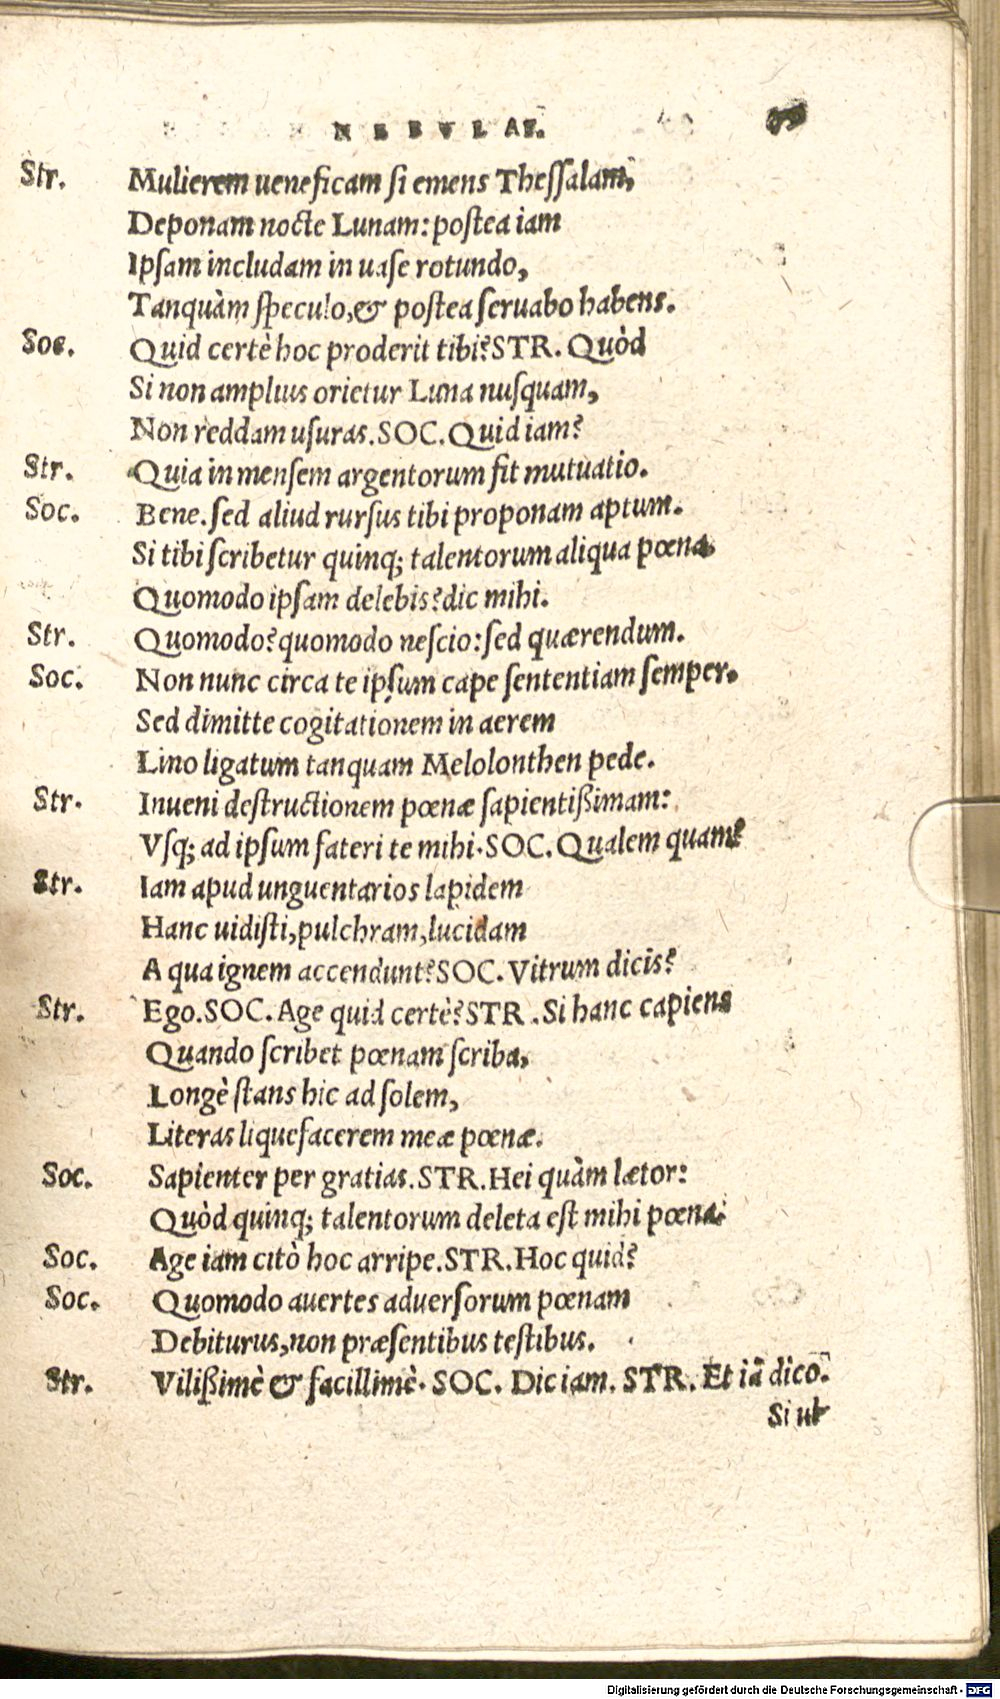 NEBVLAE.
Str. Mulierem ueneficam si emens Thessalam,
Deponam nocte Lunam: postea iam
Ipsam includam in uase rotundo,
Tanquàm speculo, & postea seruabo habens.
Soc. Quid certè hoc proderit tibi? STR. Quòd
Si non amplius orietur Luna nusquam,
Non reddam usuras. SOC. Quid iam?
Str. Quia in mensem argentorum fit mutuatio.
Soc. Bene. sed aliud rursus tibi proponam aptum.
Si tibi scribetur quinq; talentorum aliqua pœna,
Quomodo ipsam delebis? dic mihi.
Str. Quomodo? quomodo nescio: sed quærendum.
Soc. Non nunc circa te ipsum cape sententiam semper.
Sed dimitte cogitationem in aerem
Lino ligatum tanquam Melolonthen pede.
Str. Inueni destructionem pœnæ sapientißimam:
Vsq; ad ipsum fateri te mihi. SOC. Qualem quam?
Str. Iam apud unguentarios lapidem
Hanc uidisti, pulchram, lucidam
A qua ignem accendunt? SOC. Vitrum dicis?
Str. Ego. SOC. Age quid certè? STR. Si hanc capiens
Quando scribet pœnam scriba,
Longè stans hic ad solem,
Literas liquefacerem meæ pœnæ.
Soc. Sapienter per gratias. STR. Hei quàm lætor:
Quòd quinq; talentorum deleta est mihi pœna.
Soc. Age iam citò hoc arripe. STR. Hoc quid?
Soc. Quomodo auertes aduersorum pœnam
Debiturus, non præsentibus testibus.
Str. Vilißimè & facillimè. SOC. Dic iam. STR. Et iã dico.
Si ut
Digitalisierung gefördert durch die Deutsche Forschungsgemeinschaft - DFG